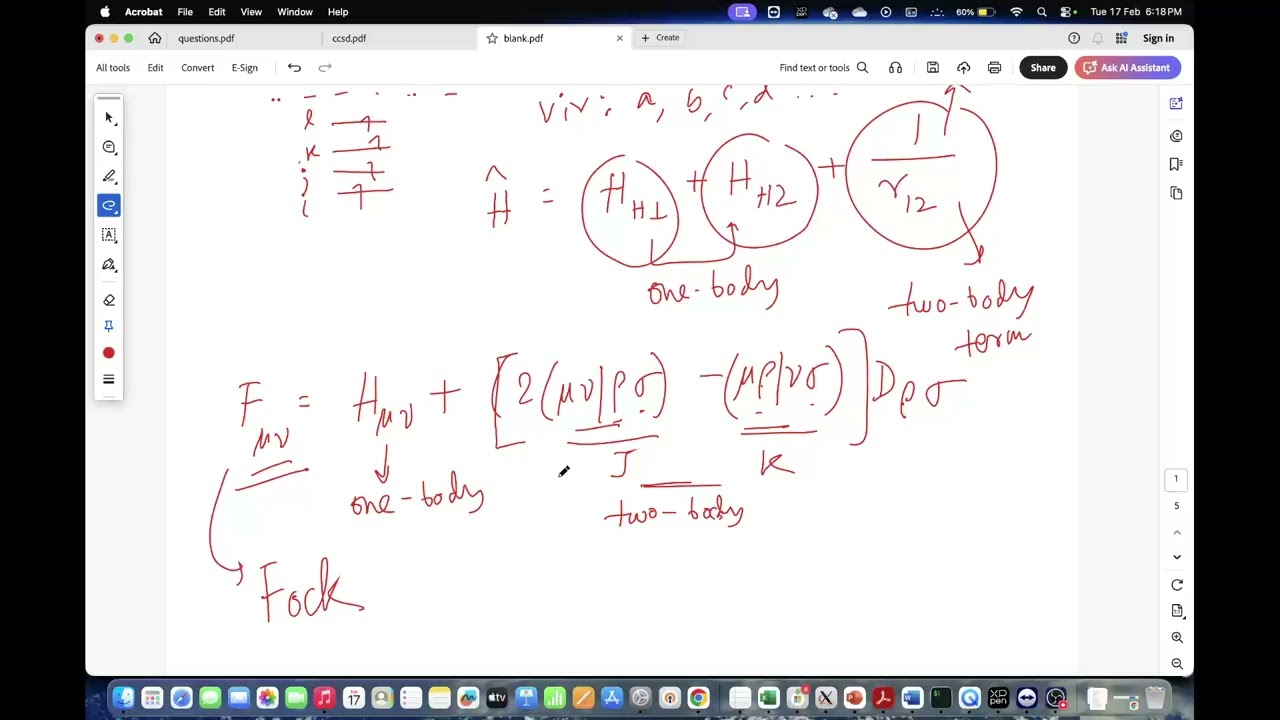 Acrobat File Edit View Window Help 60% Tue 17 Feb 6:18 PM
questions.pdf ccsd.pdf blank.pdf Create Sign in
All tools Edit Convert E-Sign Find text or tools Share Ask AI Assistant
vir: a, b, c, d ...
l
k
j
i
Ĥ = H_{H1} + H_{H2} + 1/r_{12}
one-body
two-body
term
F_{μν} = H_{μν} + [2(μν|ρσ) - (μρ|νσ)] D_{ρσ}
J K
one-body
two-body
Fock
1
5
17